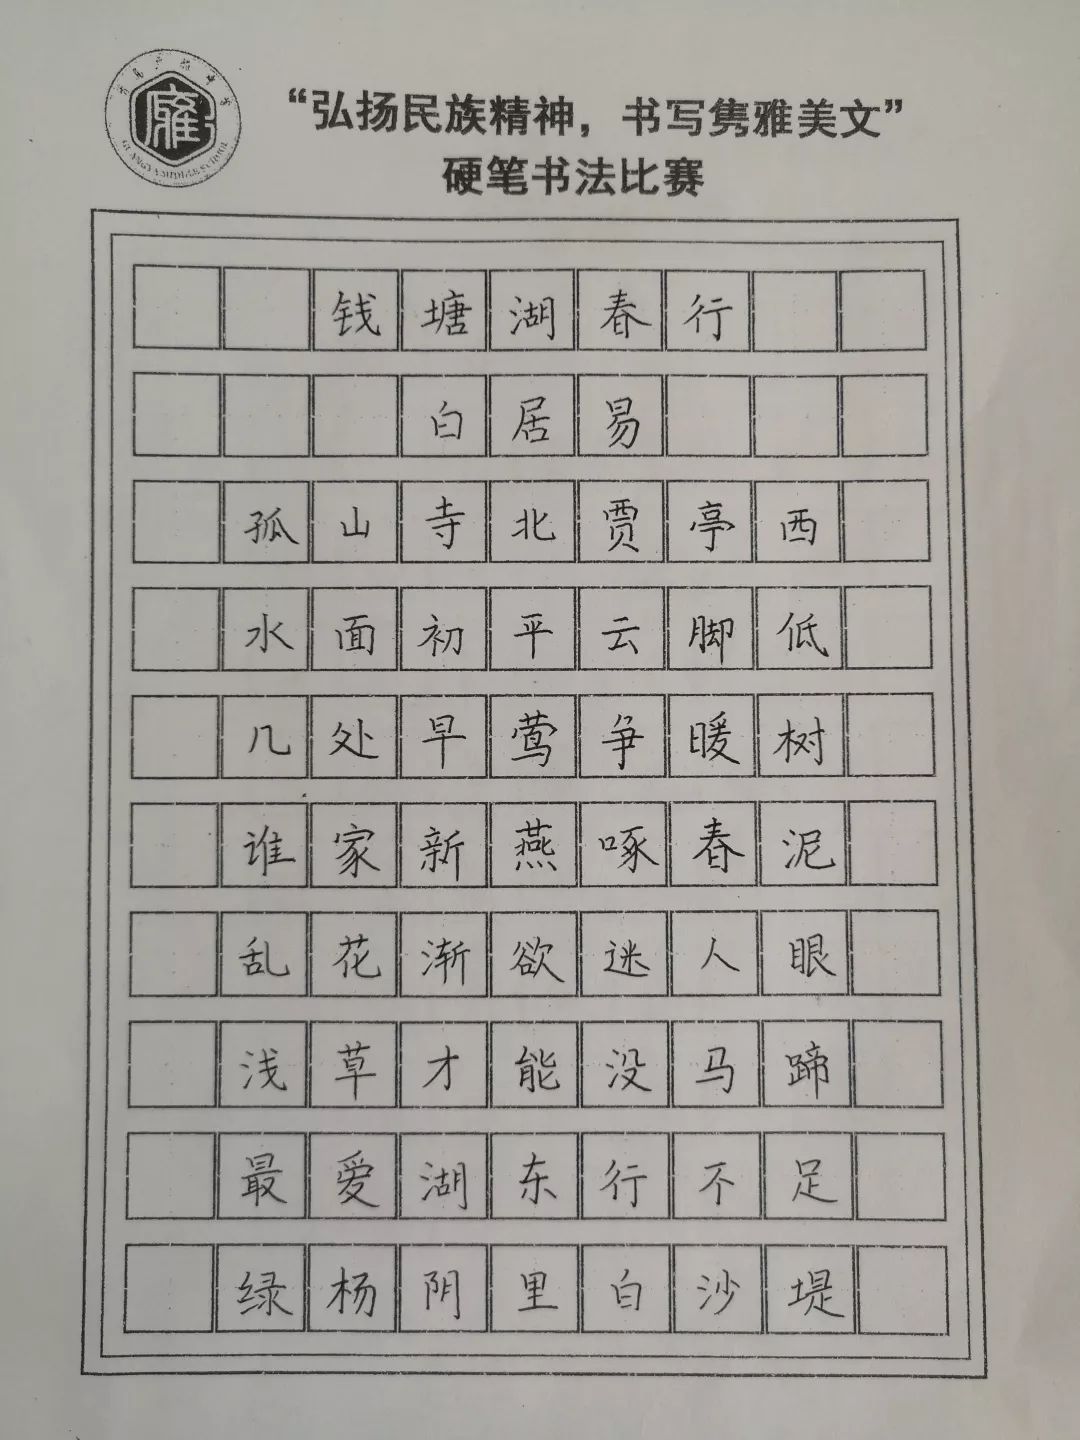 “弘扬民族精神，书写隽雅美文”
硬笔书法比赛
钱塘湖春行
白居易
孤山寺北贾亭西
水面初平云脚低
几处早莺争暖树
谁家新燕啄春泥
乱花渐欲迷人眼
浅草才能没马蹄
最爱湖东行不足
绿杨阴里白沙堤